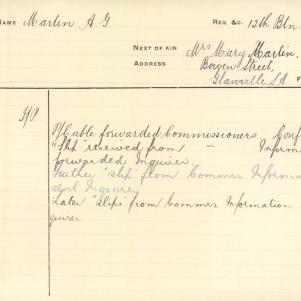 NAME Martin A G. REG. &C. 12th Btn.
NEXT OF KIN Mrs Mary Martin,
ADDRESS Bowen Street,
Glanville, S A
O/Cable forwarded Commissioners. Conf
"slip" received from " Inform
forwarded Inquirer.
Further "slip" from Commrs Informa
Later "slips" from Commrs Information
quirer